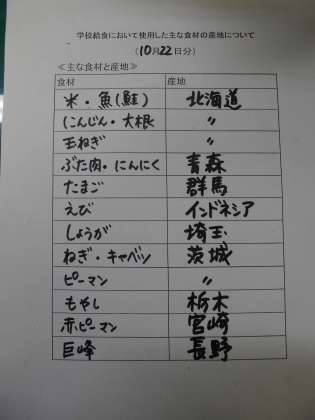 学校給食において使用した主な食材の産地について
(10月22日分)
≪主な食材と産地≫
食材 産地
米・魚(鮭) 北海道
にんじん・大根 〃
玉ねぎ 〃
ぶた肉・にんにく 青森
たまご 群馬
えび インドネシア
しょうが 埼玉
ねぎ・キャベツ 茨城
ピーマン 〃
もやし 栃木
赤ピーマン 宮崎
巨峰 長野